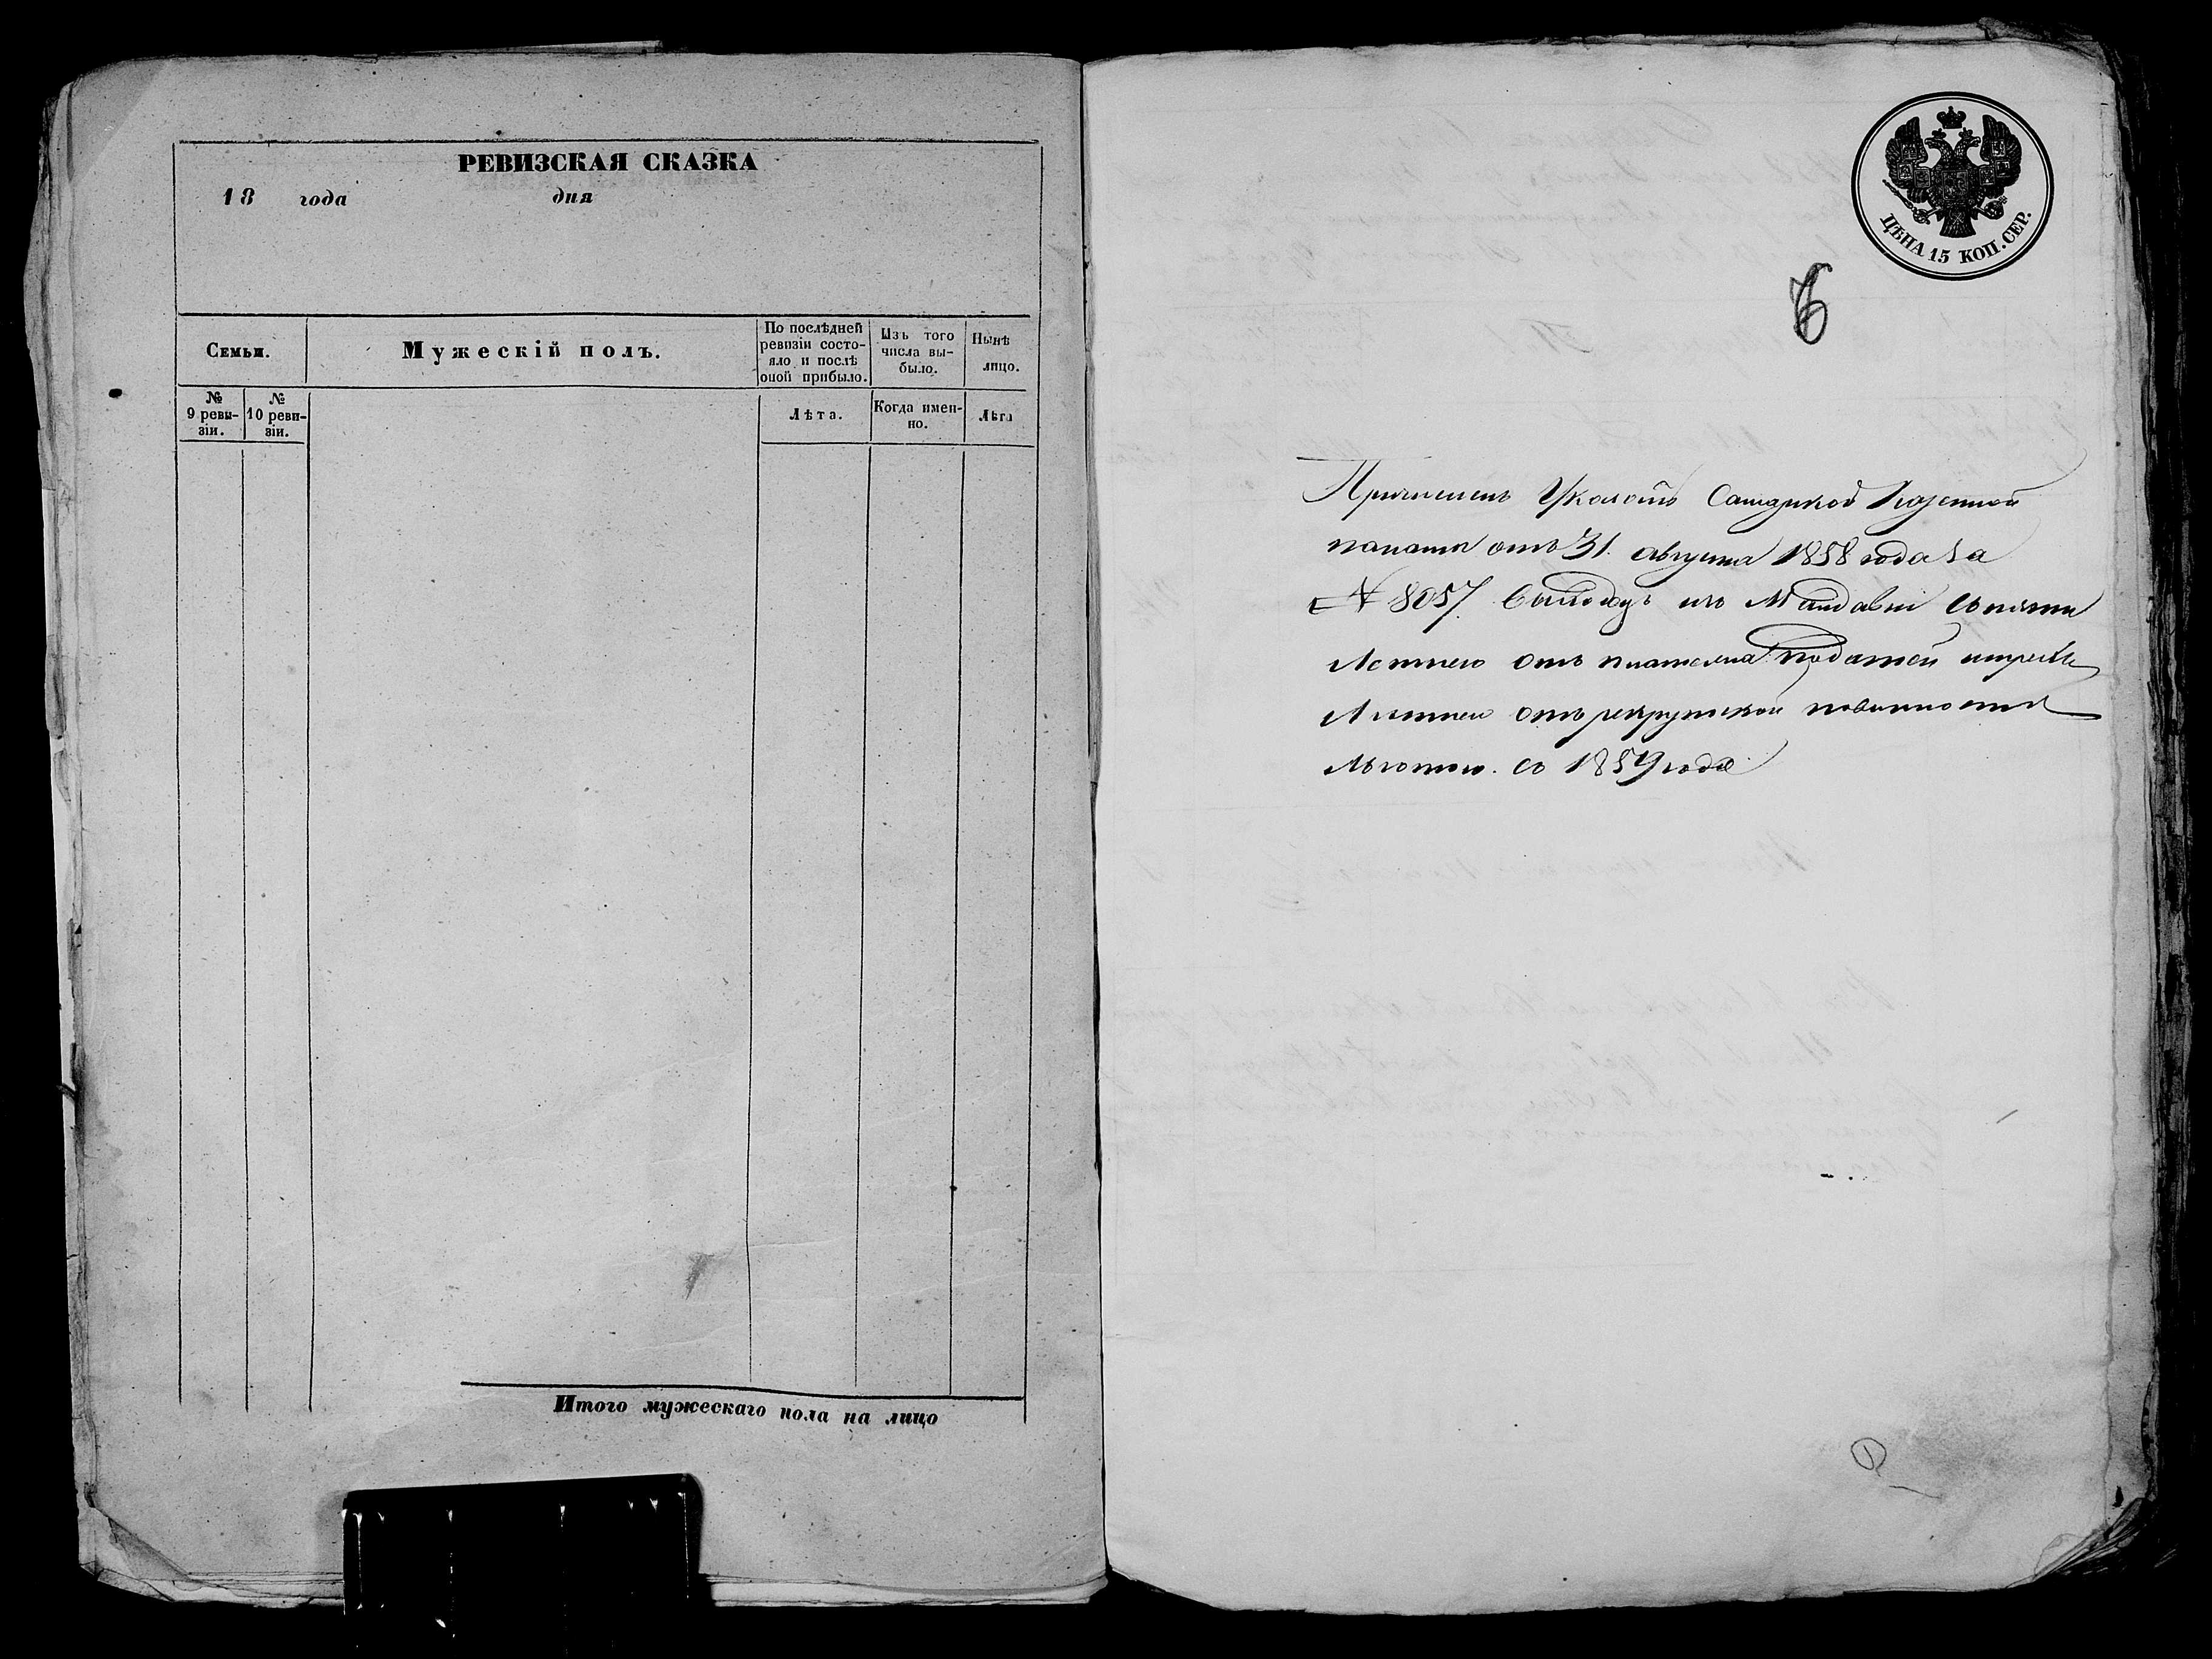 РЕВИЗСКАЯ СКАЗКА
18 года дня
Семьи.
Мужескій полъ.
По послѣдней
ревизіи состо-
яло и послѣ
оной прибыло.
Изъ того
числа вы-
было.
Нынѣ
лицо.
№
9 реви-
зіи.
№
10 реви-
зіи.
Лѣта.
Когда имен-
но.
Лѣта
Итого мужескаго пола на лицо
ЦѢНА 15 КОП. СЕР.
Причисленъ Указомъ Самарской Казенной
палаты отъ 31. августа 1858 года за
№ 8057. выходцъ изъ Малдавіи съ пяти
Летнею отъ платежа податей и трехъ
Летнею отъ рекрутской повинности
льготою. со 1859 года